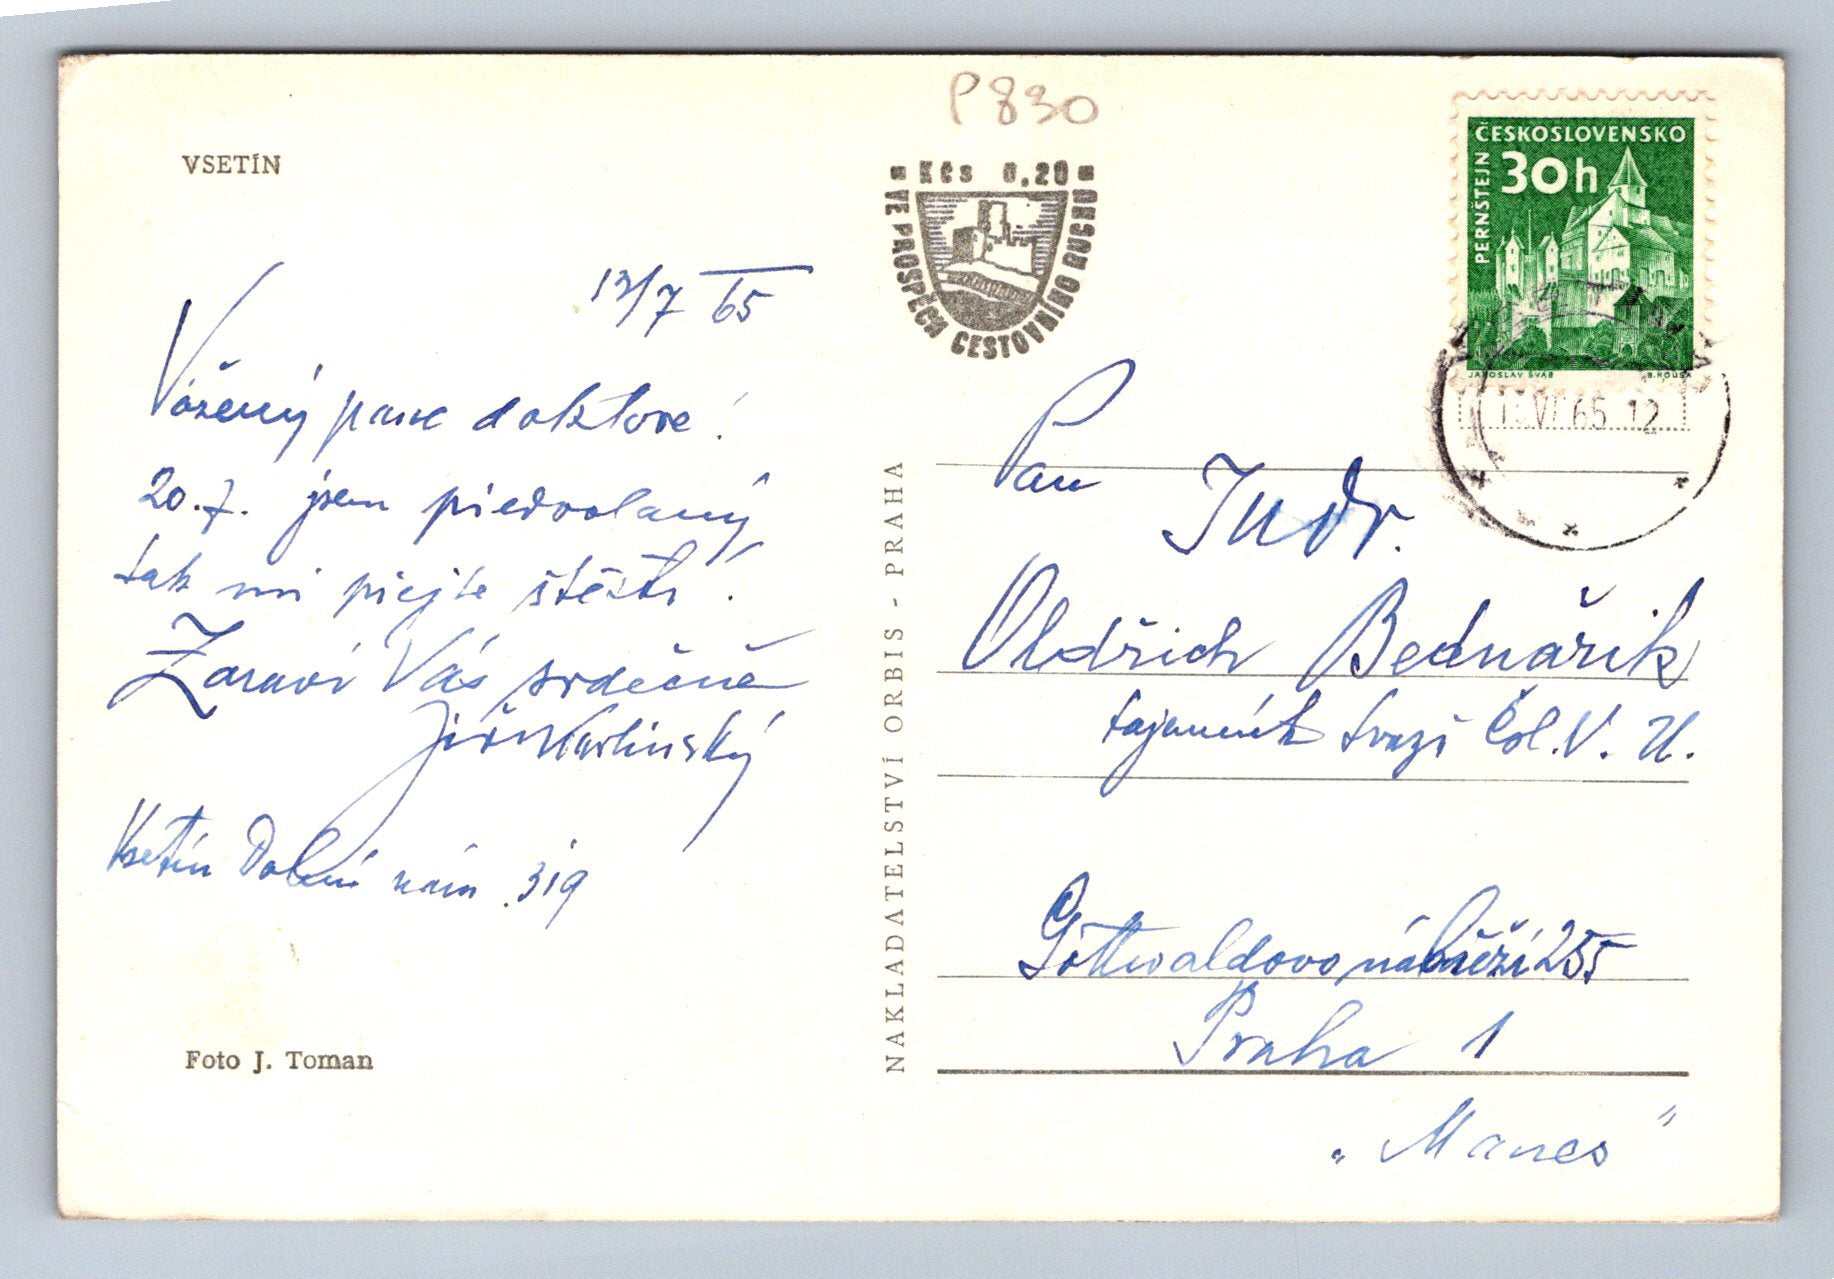 P830
VSETÍN
Kčs 0,20
VE PROSPĚCH CESTOVNÍHO RUCHU
ČESKOSLOVENSKO
30h
PERNŠTEJN
JAROSLAV ŠVÁB
B. HOUSA
VI. 65. 12
13/7 65
Vážený pane doktore!
20.7. jsem předvolaný
tak mi přejte štěstí!
Zdraví Vás srdečně
Jiří Karlinský
Vsetín Dolní nám. 319
Foto J. Toman
NAKLADATELSTVÍ ORBIS - PRAHA
Pan
Judr.
Oldřich Bednařík
tajemník Svazu Čsl. V. U.
Gottwaldovo nábřeží 255
Praha 1
„Manes"